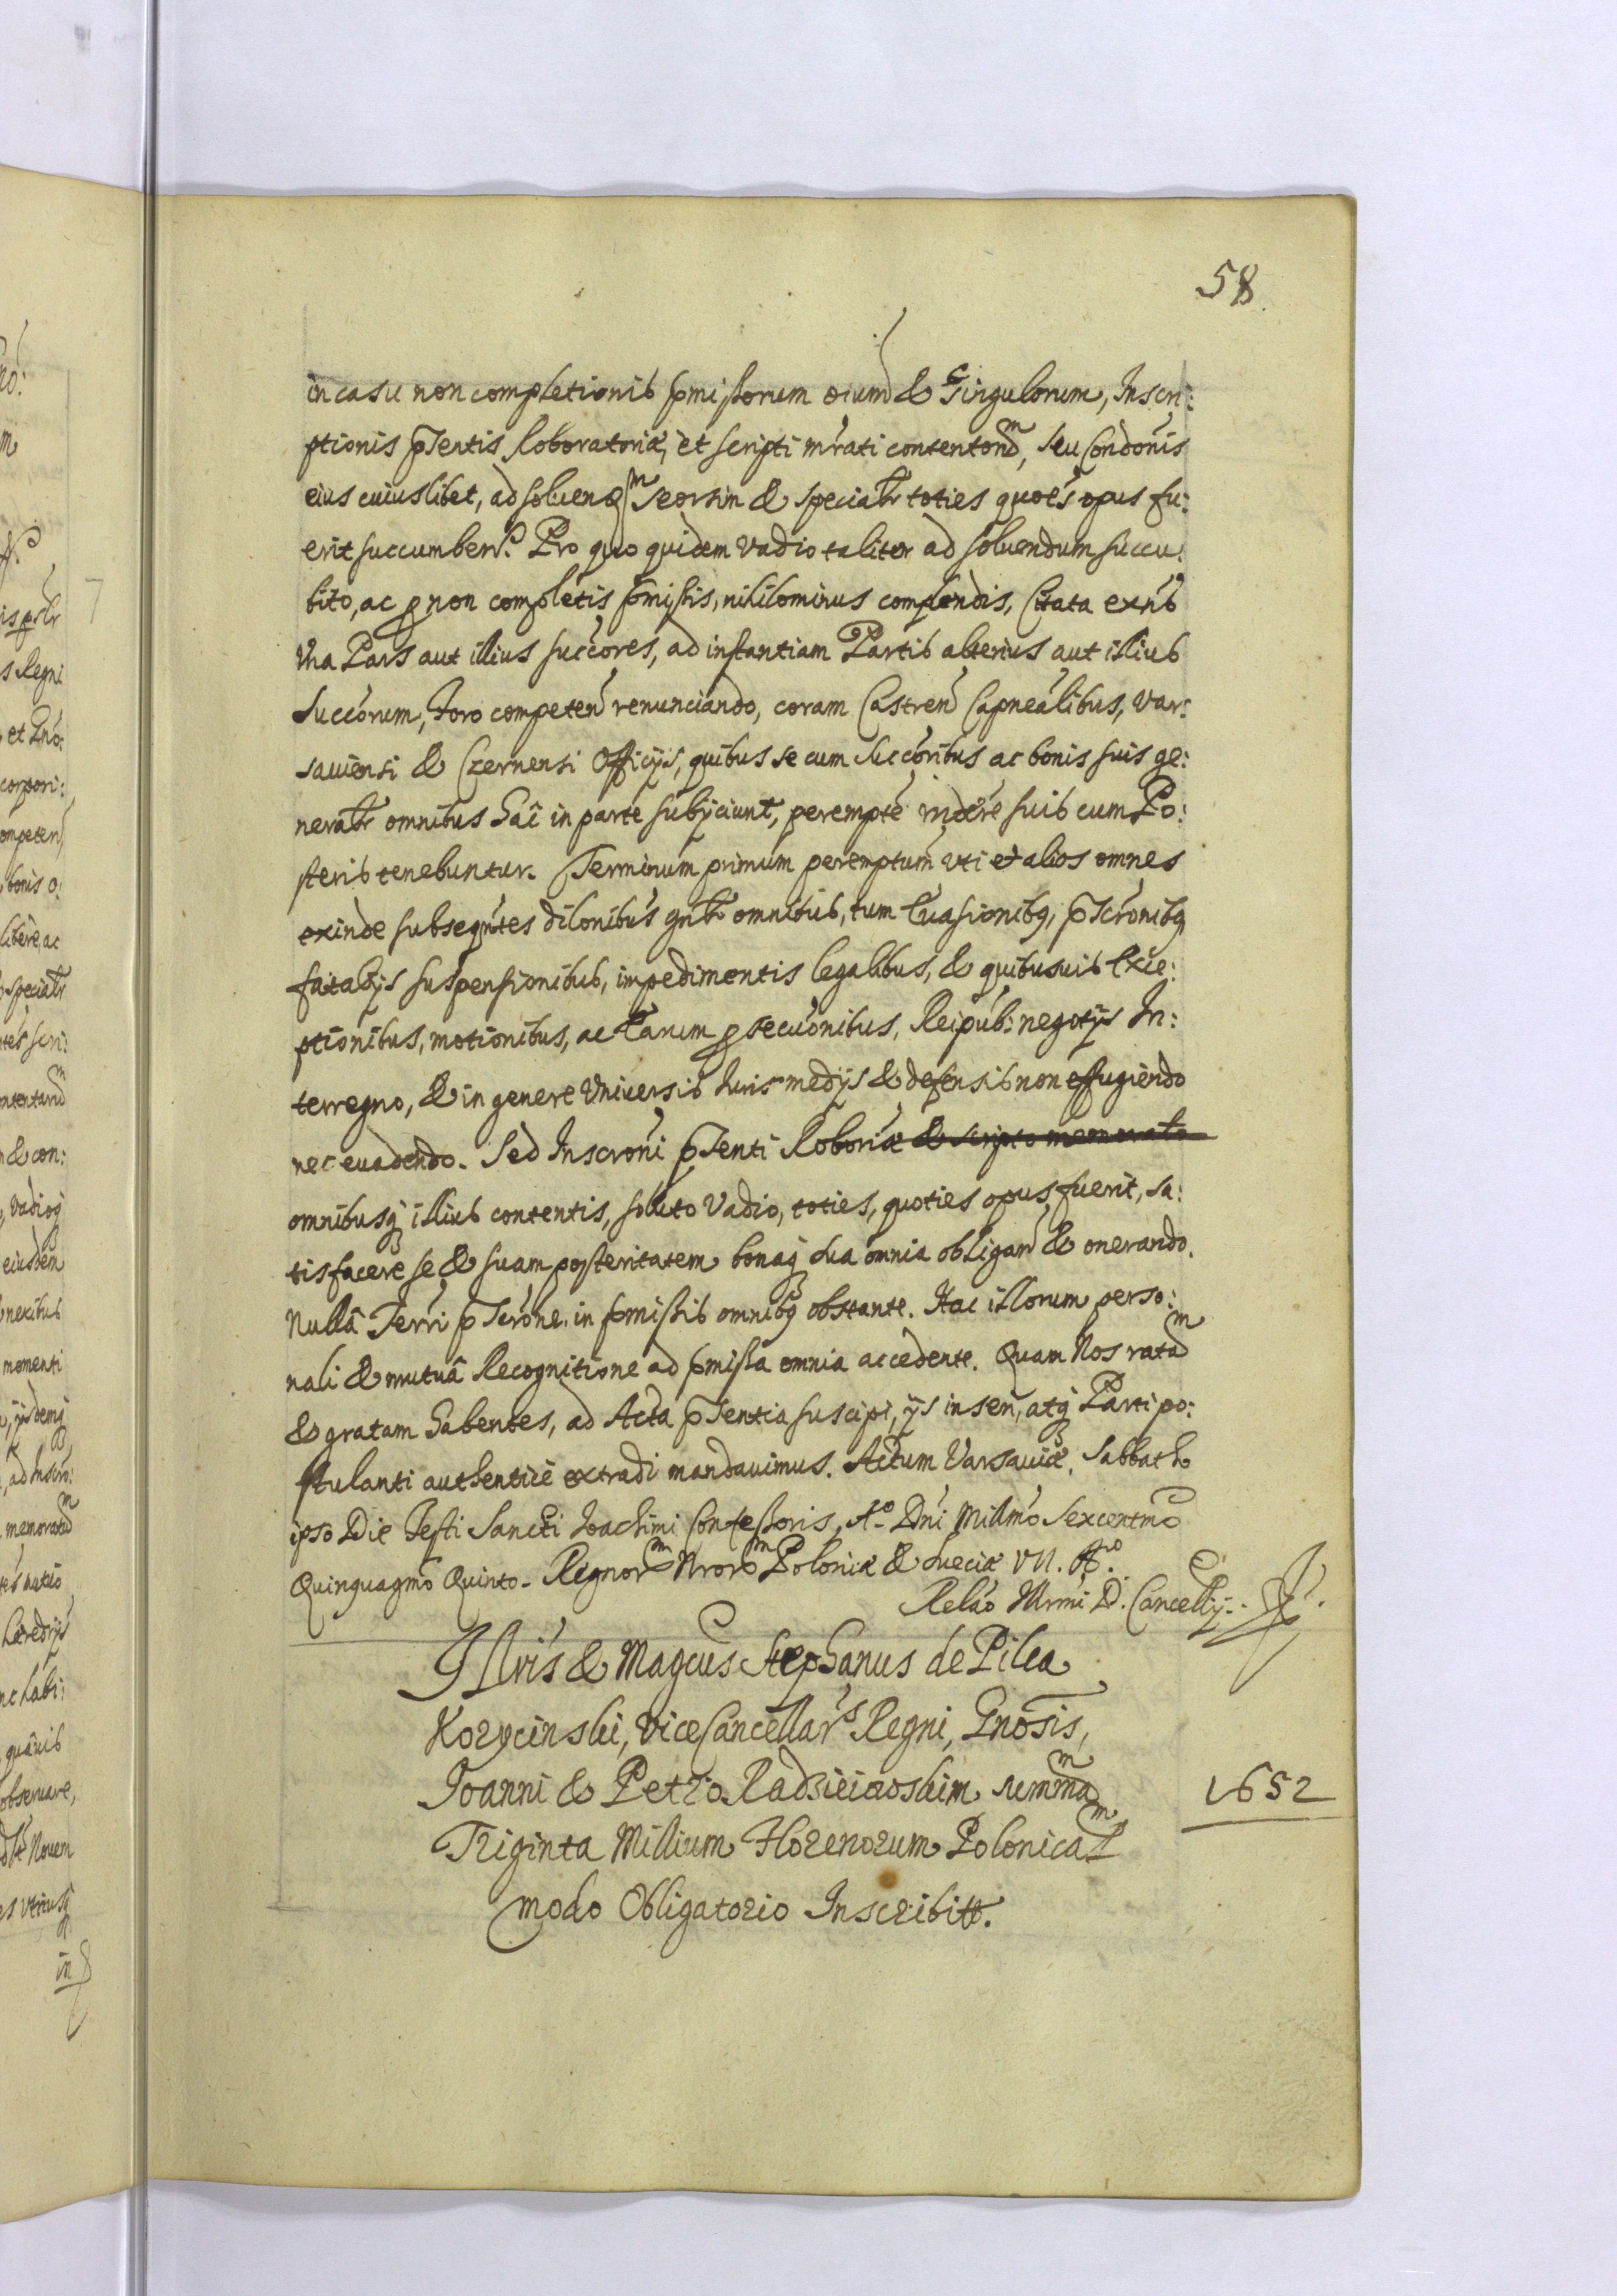 58
in casu non completionis p̃missorum oium & singulorum, Inscri:
ptionis p̃sentis Roboratoriæ, et scripti mrati contentorᵐ, seu Condonis
eius cuiuslibet, ad soluendᵐ seorsim & specialr toties quoes opus fu:
erit succumben. Pro quo quidem vadio taliter ad soluendum succu:
bito, ac p non completis p̃missis, nihilominus complendis, Citata exnb
Vna Pars aut illius succores, ad instantiam Partis alterius aut illius
Succorum, Foro competen renunciando, coram Castren Capnealibus, Var:
saviensi & Czernensi Officijs, quibus se cum succoribus ac bonis suis ge:
neralr omnibus hac in parte subijciunt, perempte rndere suis cum Po:
steris tenebuntur. Terminum primum peremptum vti et alios omnes
exinde subseqntes dilonibus gnlr omnibus, tum Euasionibq, p̃scronibq
fatalijs suspensionibus, impedimentis legalibus, & quibusuis Exce:
ptionibus, motionibus, ac Carum p secuonibus, Reipub: negotijs In:
terregno, & in genere Vniversis Iuris medijs & defensis non effugiendo
nec evadendo. Sed Inscroni p̃senti Roboriæ & scripto memorato
omnibusq illius contentis, soluto Vadio, toties, quoties opus fuerit, sa:
tisfacere se & suam posteritatem bonaq sua omnia obligan & onerando.
Nullâ Terri p̃scrone in p̃missis omnibq obstante. Hac illorum perso:
nali & mutuâ Recognitione ad p̃missa omnia accedente. Quam Nos ratᵐ
& gratam habentes, ad Acta p̃sentia suscipi, ijs inseri, atq Parti po:
stulanti authentice extradi mandavimus. Actum Varsaviæ, Sabbatho
ipso Die Festi Sancti Ioachimi Confessoris, Aº Dni Millmo Sexcentmo
Quinquagmo Quinto. Regnorᵐ Nrorᵐ Poloniæ & Sueciæ VII. Aº.
Relao Illrmi D. Cancellrij.
Illris & Magcus Stephanus de Pilca
Korycinski, ViceCancellarˢ Regni, Gnosis,
Ioanni & Petro Radzieiowskim summᵐ
Triginta Millium Florenorum Polonicalᵐ
modo Obligatorio Inscribitt.
1652